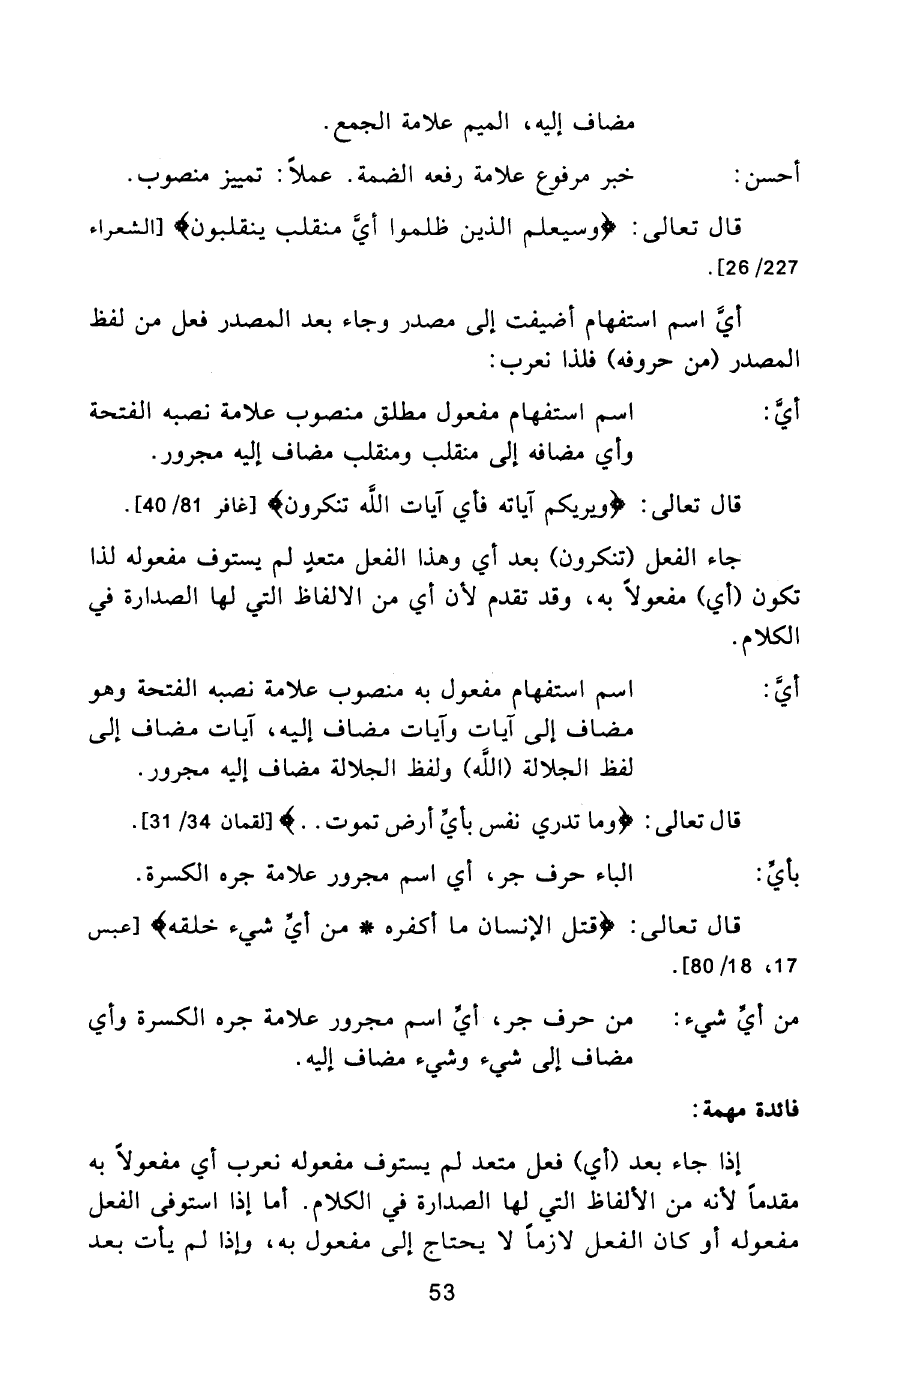 مضاف إليه، الميم علامة الجمع.
أحسن: خبر مرفوع علامة رفعه الضمة. عملاً: تمييز منصوب.
قال تعالى: ﴿وسيعلم الذين ظلموا أيَّ منقلب ينقلبون﴾ [الشعراء
26/227].
أيَّ اسم استفهام أضيفت إلى مصدر وجاء بعد المصدر فعل من لفظ
المصدر (من حروفه) فلذا نعرب:
أيَّ: اسم استفهام مفعول مطلق منصوب علامة نصبه الفتحة
وأي مضافه إلى منقلب ومنقلب مضاف إليه مجرور.
قال تعالى: ﴿ويريكم آياته فأي آيات اللَّه تنكرون﴾ [غافر 40/81].
جاء الفعل (تنكرون) بعد أي وهذا الفعل متعدٍ لم يستوف مفعوله لذا
تكون (أي) مفعولاً به، وقد تقدم لأن أي من الالفاظ التي لها الصدارة في
الكلام.
أيَّ: اسم استفهام مفعول به منصوب علامة نصبه الفتحة وهو
مضاف إلى آيات وآيات مضاف إليه، آيات مضاف إلى
لفظ الجلالة (اللَّه) ولفظ الجلالة مضاف إليه مجرور.
قال تعالى: ﴿وما تدري نفس بأيِّ أرض تموت..﴾ [لقمان 31/34].
بأيِّ: الباء حرف جر، أي اسم مجرور علامة جره الكسرة.
قال تعالى: ﴿قتل الإنسان ما أكفره * من أيِّ شيء خلقه﴾ [عبس
17، 80/18].
من أيِّ شيء: من حرف جر، أيِّ اسم مجرور علامة جره الكسرة وأي
مضاف إلى شيء وشيء مضاف إليه.
فائدة مهمة:
إذا جاء بعد (أي) فعل متعد لم يستوف مفعوله نعرب أي مفعولاً به
مقدماً لأنه من الألفاظ التي لها الصدارة في الكلام. أما إذا استوفى الفعل
مفعوله أو كان الفعل لازماً لا يحتاج إلى مفعول به، وإذا لم يأت بعد
53